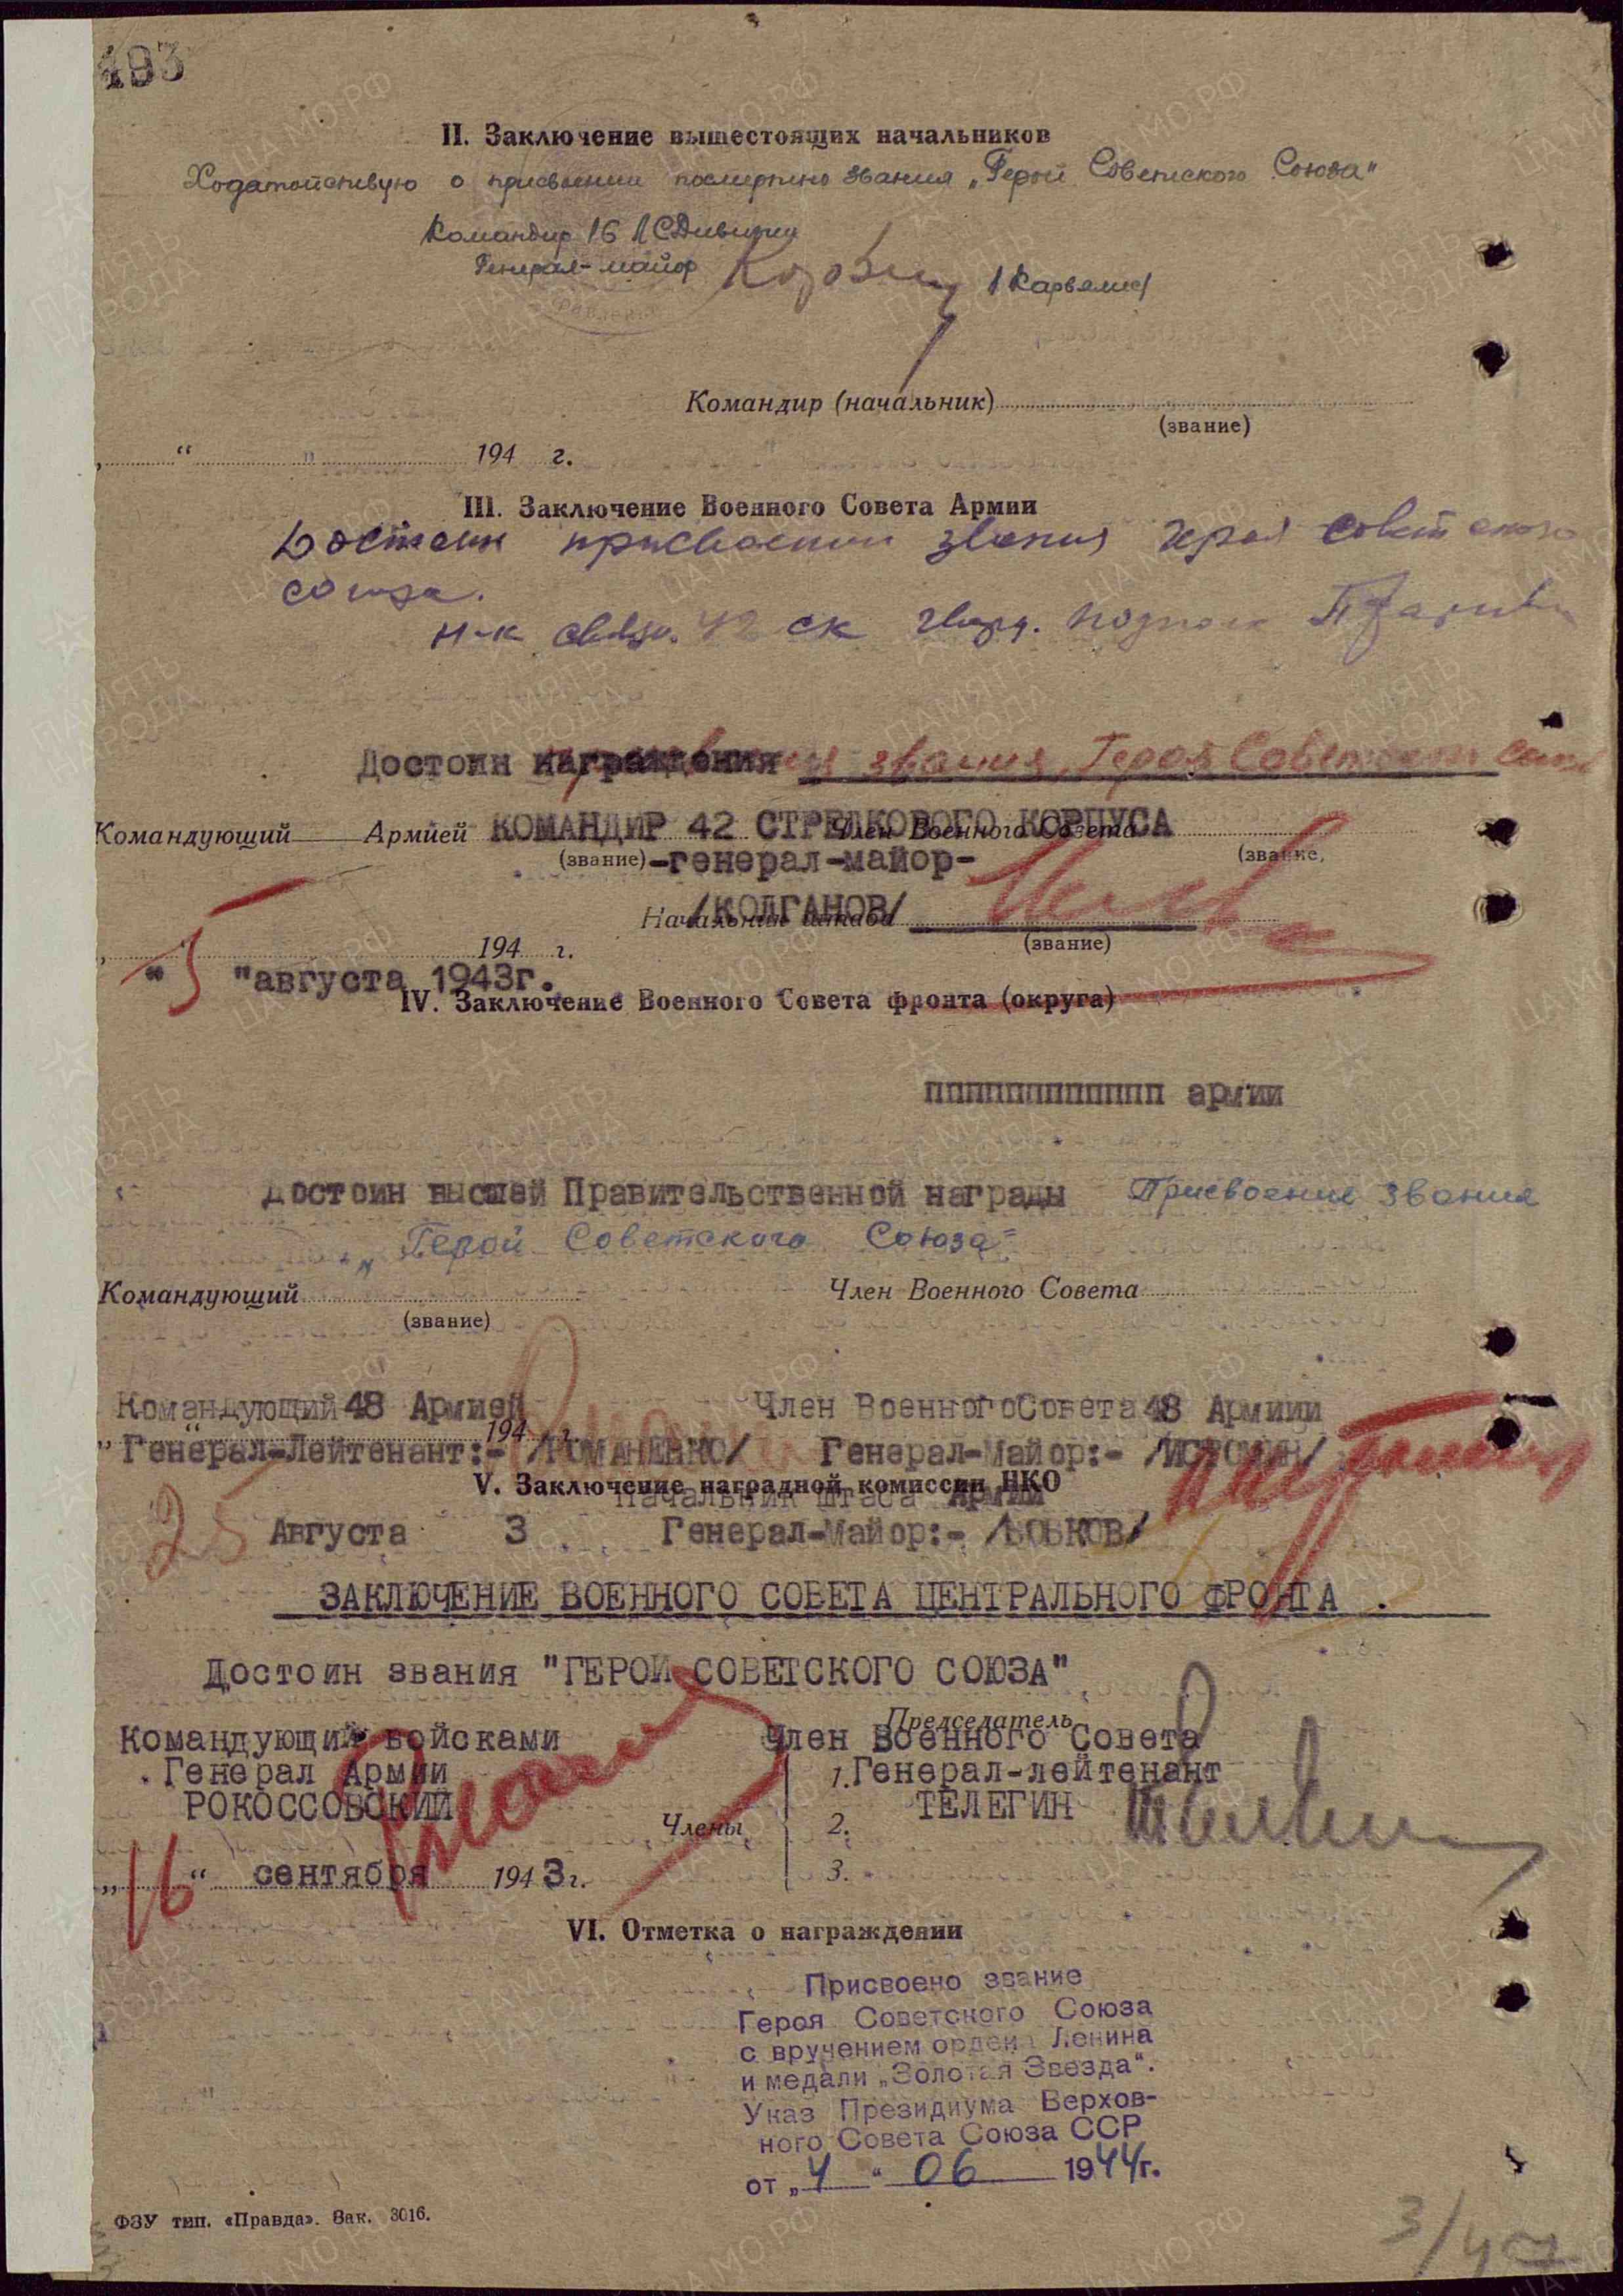 193
II. Заключение вышестоящих начальников
Ходатойствую о присвоении посмертно звания „Герой Советского Союза"
Командир 16 ЛСДивизии
Генерал-майор /Карвялис/
Командир (начальник)
(звание)
„ “ 194 г.
III. Заключение Военного Совета Армии
Достоин присвоении звания героя советского
союза.
н-к связи. 42 ск гвард.
Достоин награждения звания „Героя Советского Союза
Командующий Армией КОМАНДИР 42 СТРЕЛКОВОГО КОРПУСА Член Военного Совета
(звание) -генерал-майор- (звание)
Начальник штаба /КОЛГАНОВ/
(звание)
194 г.
"5 "августа 1943г.
IV. Заключение Военного Совета фронта (округа)
пппппппппппп армии
Достоин высшей Правительственной награды Присвоение звания
„Герой Советского Союза"
Командующий Член Военного Совета
(звание)
Командующий 48 Армией Член ВоенногоСовета 48 Армиии
„ “ 194 г.
Генерал-Лейтенант:- /РОМАНЕНКО/ Генерал-Майор:- /ИСТОМИН/
V. Заключение наградной комиссии НКО
Начальник штаба Армии
25 Августа 3 Генерал-Майор:- /БОБКОВ/
ЗАКЛЮЧЕНИЕ ВОЕННОГО СОВЕТА ЦЕНТРАЛЬНОГО ФРОНТА .
Достоин звания "ГЕРОЙ СОВЕТСКОГО СОЮЗА"
Председатель
Командующий войсками Член Военного Совета
Генерал Армии 1. Генерал-лейтенант
РОКОССОВСКИЙ ТЕЛЕГИН
Члены 2.
„16“ сентября 1943г. 3.
VI. Отметка о награждении
Присвоено звание
Героя Советского Союза
с вручением ордена Ленина
и медали „Золотая Звезда“.
Указ Президиума Верхов-
ного Совета Союза ССР
от „4“ 06 1944г.
ФЗУ тип. «Правда». Зак. 3016.